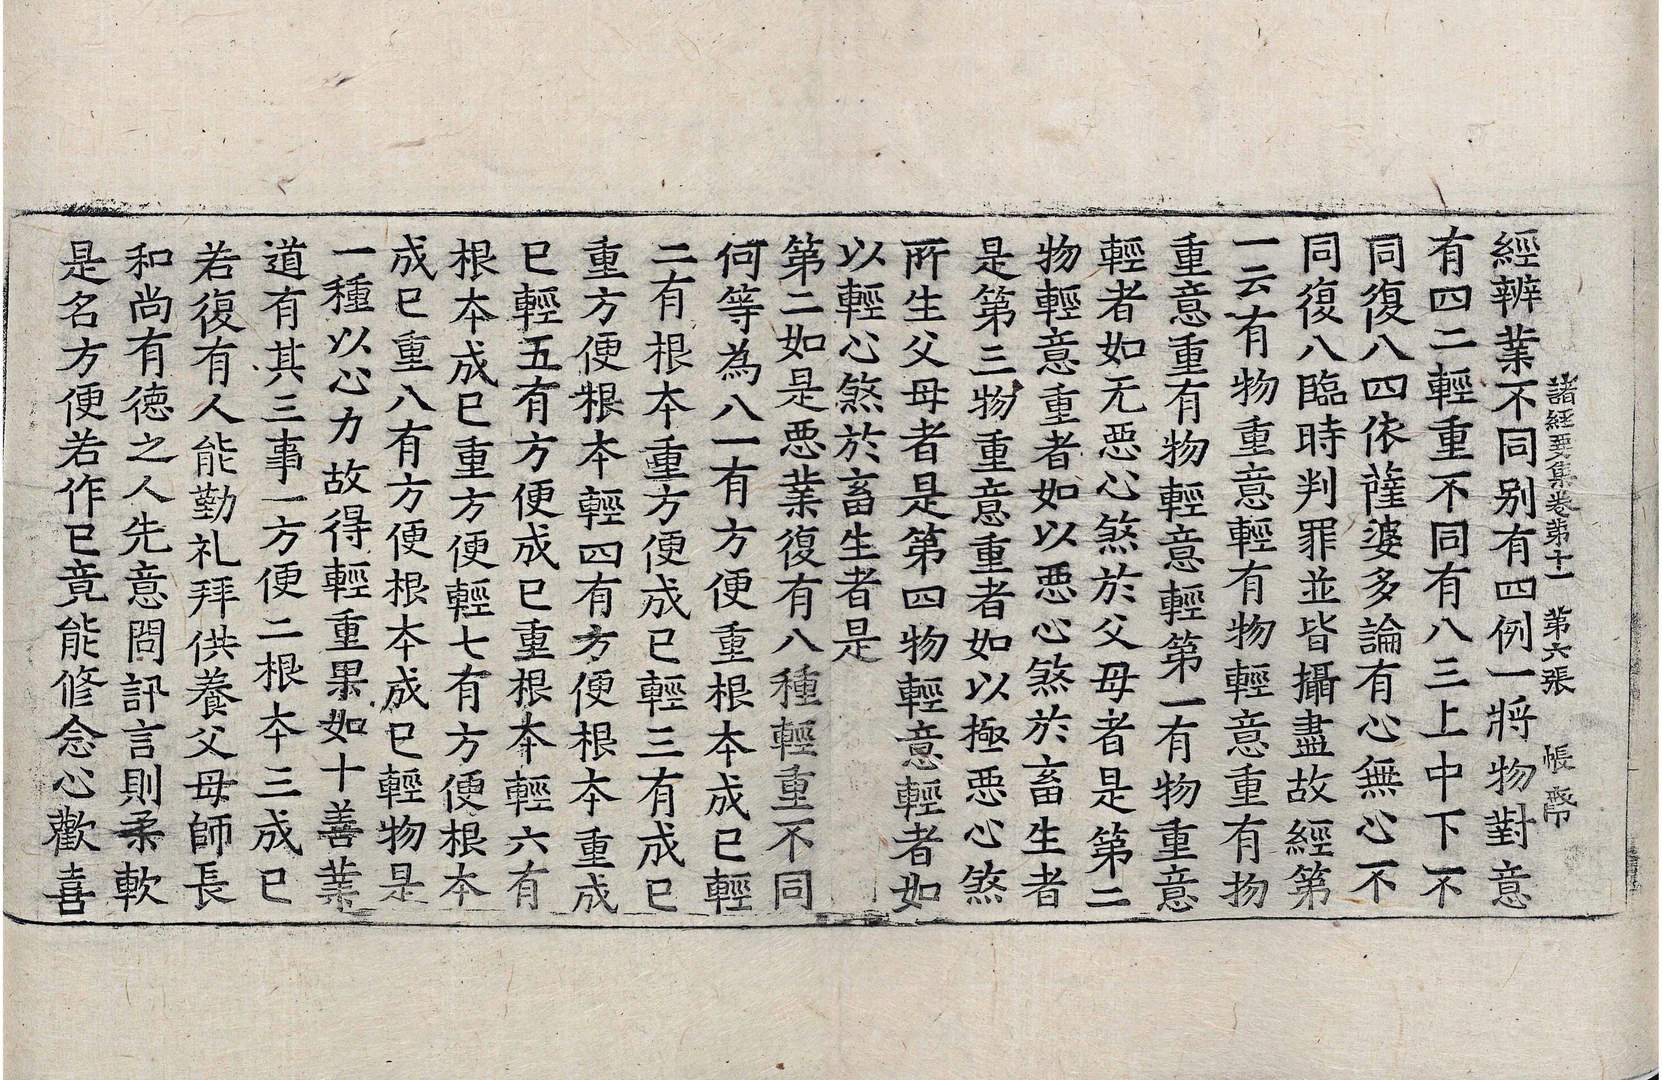 諸經要集卷第十一 第六張 帳
經辨業不同别有四例一將物對意
有四二輕重不同有八三上中下不
同復八四依薩婆多論有心無心不
同復八臨時判罪並皆攝盡故經第
一云有物重意輕有物輕意重有物
重意重有物輕意輕第一有物重意
輕者如无惡心煞於父母者是第二
物輕意重者如以惡心煞於畜生者
是第三物重意重者如以極惡心煞
所生父母者是第四物輕意輕者如
以輕心煞於畜生者是
第二如是惡業復有八種輕重不同
何等為八一有方便重根本成已輕
二有根本重方便成已輕三有成已
重方便根本輕四有方便根本重成
已輕五有方便成已重根本輕六有
根本成已重方便輕七有方便根本
成已重八有方便根本成已輕物是
一種以心力故得輕重果如十善業
道有其三事一方便二根本三成已
若復有人能勤礼拜供養父母師長
和尚有德之人先意問訊言則柔軟
是名方便若作已竟能修念心歡喜